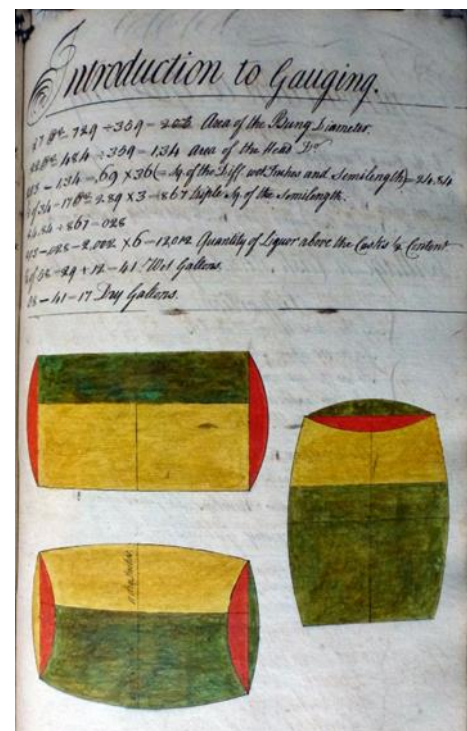 Introduction to Gauging.
27 729 ÷ 359 = Area of the Bung Diameter.
22 484 ÷ 359 = 1.34 Area of the Head Dr
- 1.34 = .69 × 36 (= Sq. of the Diff. wet Inches and Semilength) = 24.84
of 34 = 17 289 × 3 = 867 triple Sq. of the Semilength.
24.84 ÷ 867 = 028
- .028 = 2.002 × 6 = 12.012 Quantity of Liquor above the Casks ½ Content
½ of 58 = 29 + 12 = 41 Wet Gallons.
58 - 41 = 17 Dry Gallons.